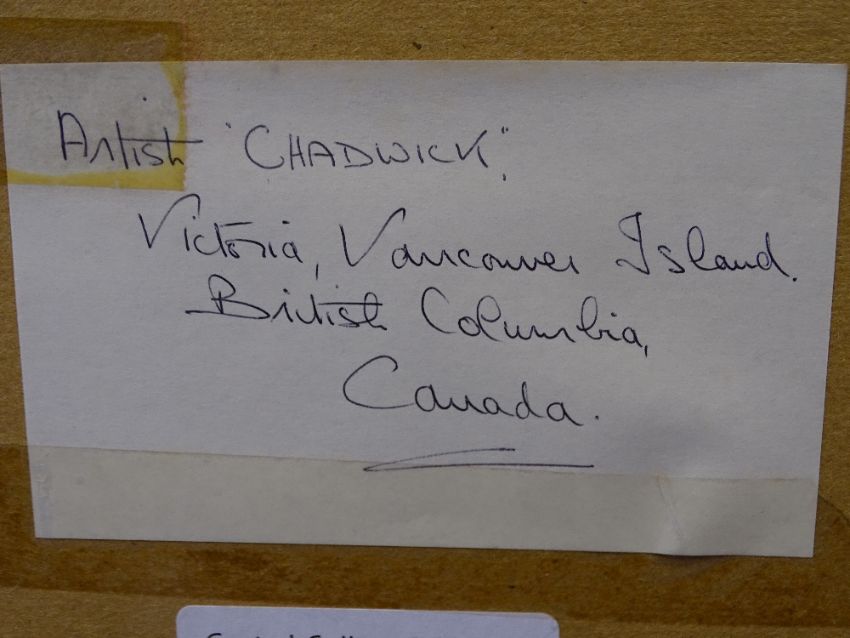 Artist "CHADWICK",
Victoria, Vancouver Island.
British Columbia,
Canada.